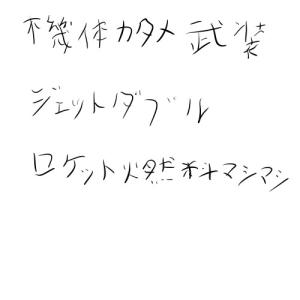 機体カタメ武装
ジェットダブル
ロケット燃料マシマシ